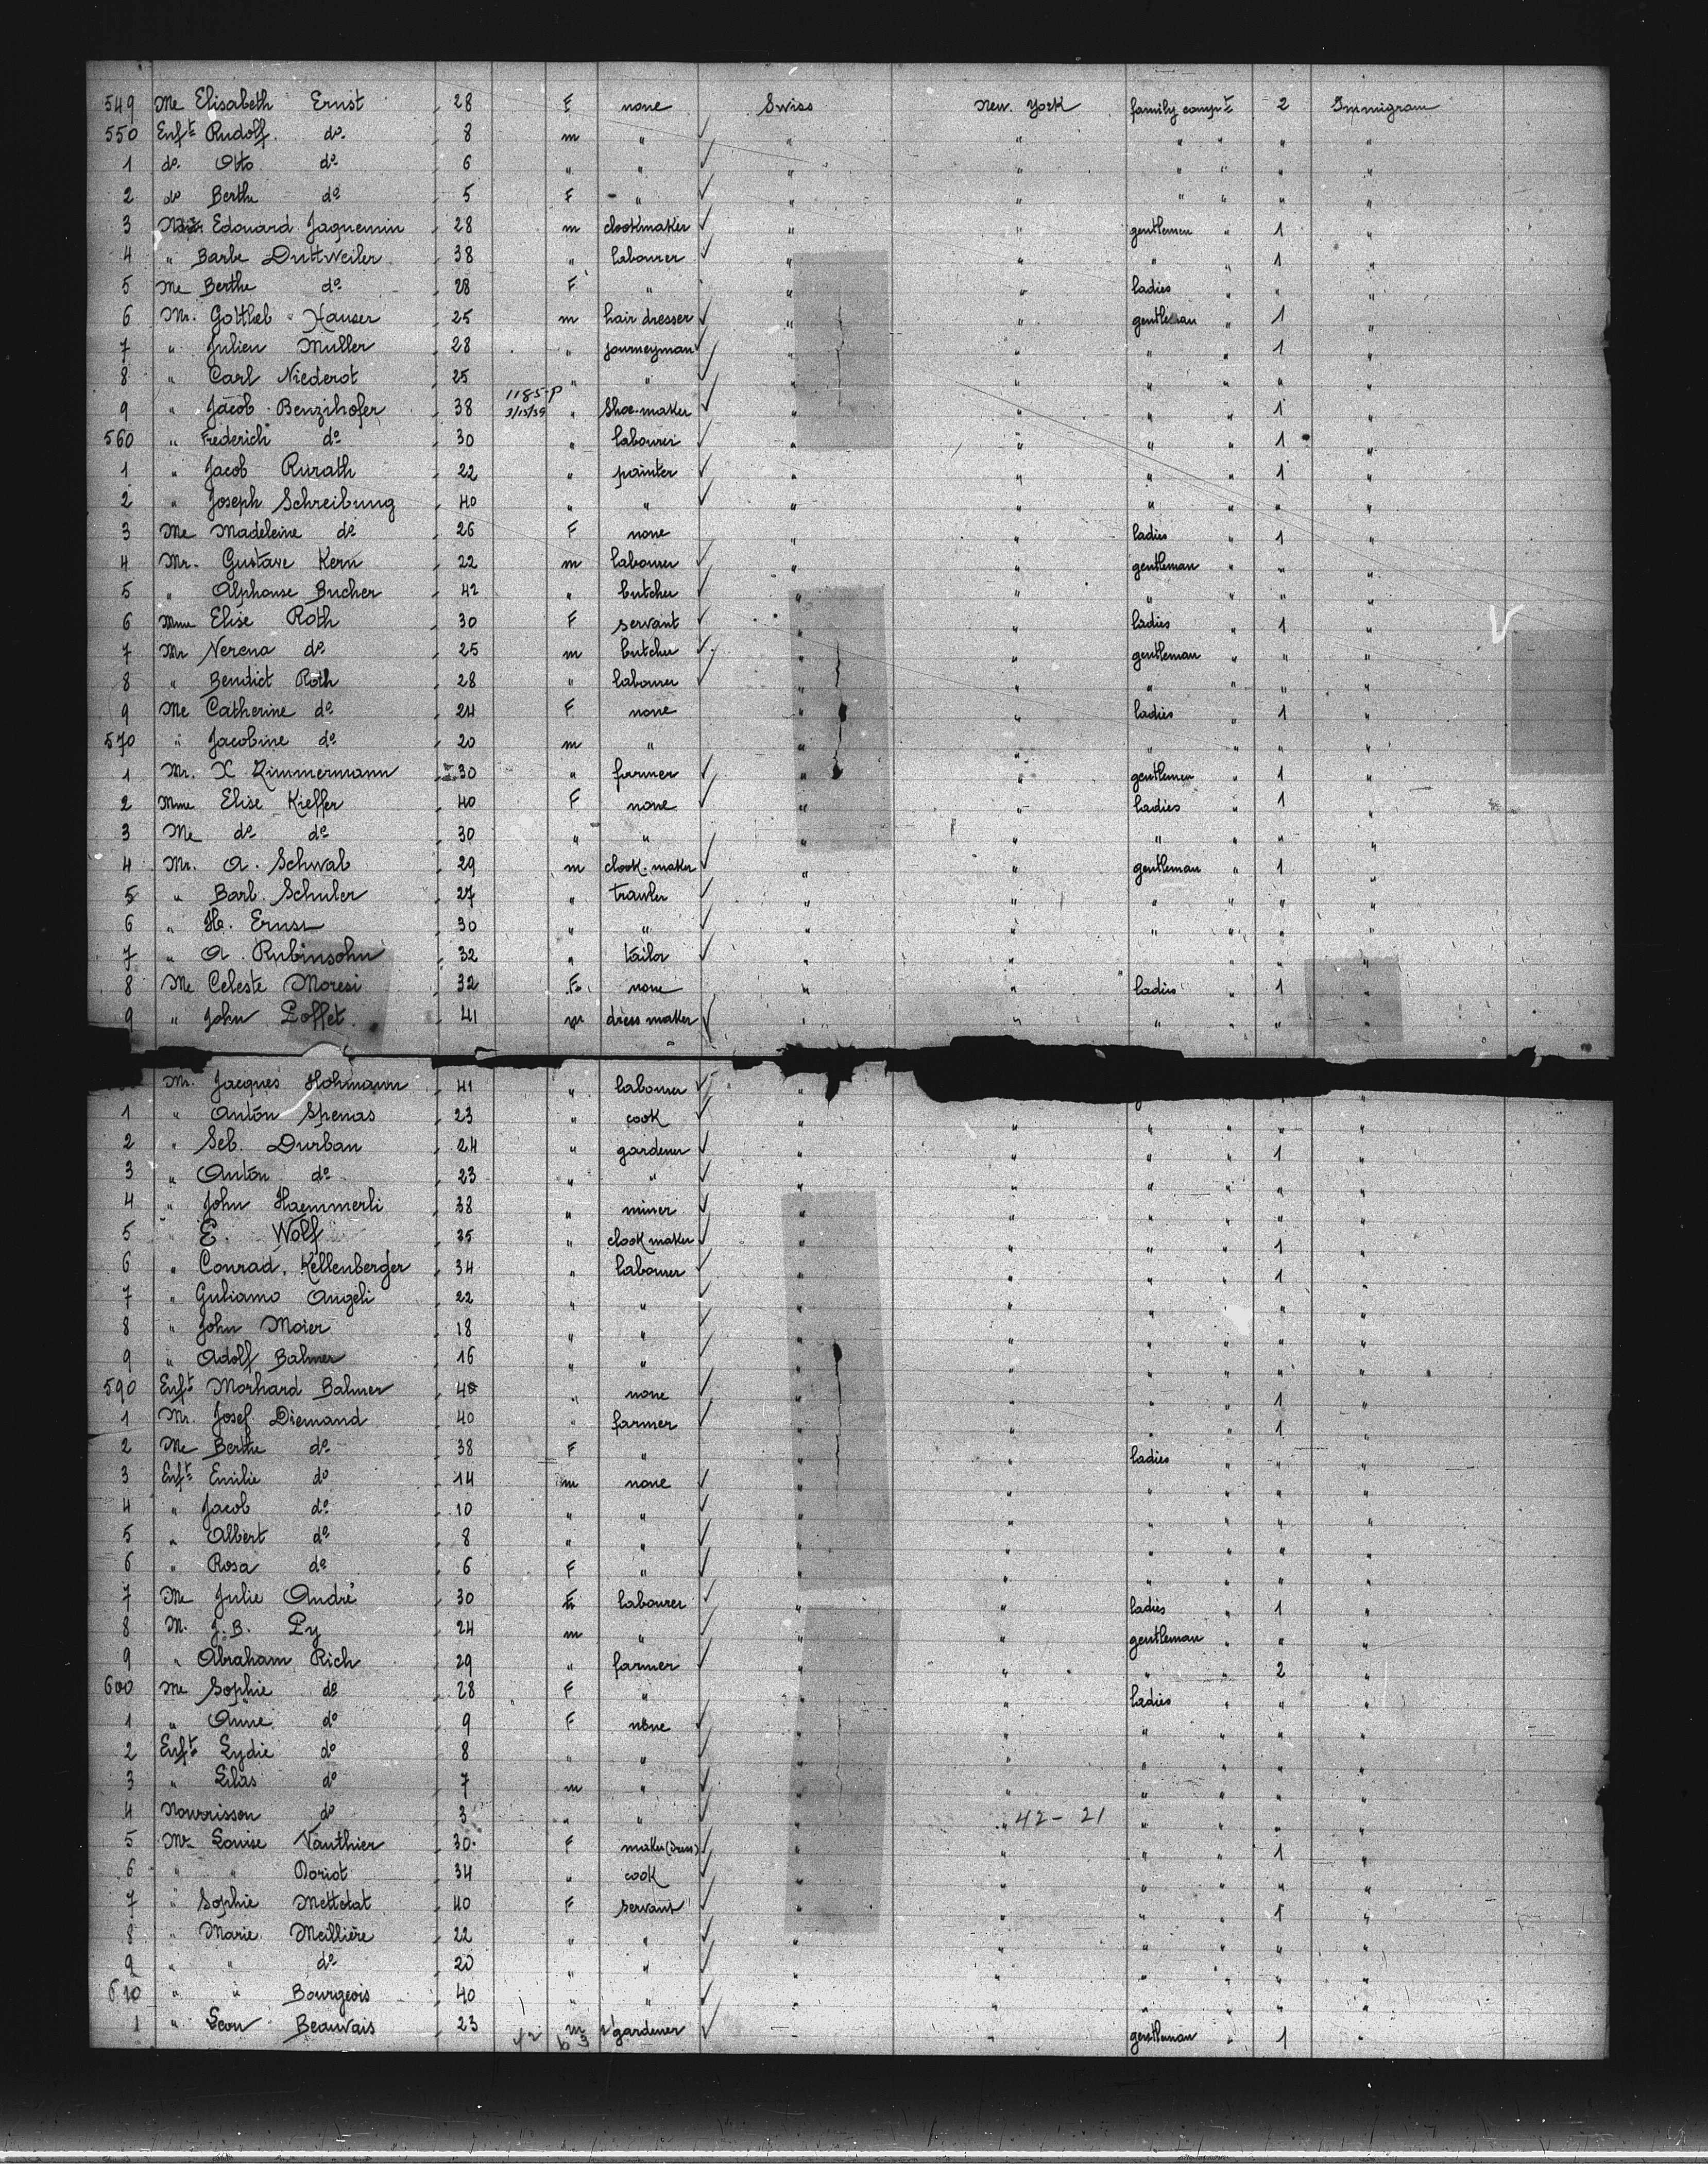 549 Me Elisabeth Ernst 28 F none Swiss New. York family comp^t 2 Immigram
550 Enf^t Rudolf. d° 8 m " " " " " " "
1 d° Otto d° 6 " " " " " " " "
2 d° Berthe d° 5 F " " " " " " "
3 Edouard Jaquemin 28 m clookmaker " " gentlemen " 1 "
4 " Barbe Duttweiler 38 " labourer " " " " 1 "
5 Me Berthe d° 28 F " " " ladies " " "
6 Mr. Gottlieb Hauser 25 m hair dresser " " gentleman " 1 "
7 " Julien Muller 28 " journeyman " " " " 1 "
8 " Carl Niederot 25 " " " " " " " "
1185-P
9 " Jacob Benzihofer 38 3/15/39 " Shoe-maker " " " " 1 "
560 " Frederich d° 30 " labourer " " " " 1 "
1 " Jacob Rurath 22 " painter " " " " 1 "
2 " Joseph Schreibung 40 " " " " " " " "
3 Me Madeleine d° 26 F none " " ladies " 1 "
4 Mr. Gustave Kern 22 m labourer " " gentleman " " "
5 " Alphonse Bucher 42 " butcher " " " " " "
6 Mme Elise Roth 30 F servant " " ladies " 1 "
7 Mr Verena d° 25 m butcher " " gentleman " " "
8 " Bendict Roth 28 " labourer " " " " " "
9 Me Catherine d° 24 F none " " ladies " 1 "
570 " Jacobine d° 20 m " " " " " " "
1 Mr. X Zimmermann 30 " farmer " " gentlemen " 1 "
2 Mme Elise Kieffer 40 F none " " ladies " 1 "
3 Me d° d° 30 " " " " " " " "
4 Mr. A. Schwab 29 m clook.maker " " gentleman " 1 "
5 " Barb. Schuler 27 " travler " " " " " "
6 " He. Ernst 30 " " " " " " " "
7 " A. Rubinsohn 32 " tailor " " " " " "
8 Me Celeste Moresi 32 F. none " " ladies " 1 "
9 " John Poffet 41 m dress maker " " " " " "
Mr. Jacques Hohmann 41 " labourer
1 " Anton Spenas 23 " cook " " " " " "
2 " Seb. Durban 24 " gardener " " " " 1 "
3 " Anton d° 23 " " " " " " " "
4 " John Haemmerli 38 " miner " " " " " "
5 " E. Wolf 35 " clook maker " " " " 1 "
6 " Conrad. Kellenberger 34 " labourer " " " " 1 "
7 " Guliamo Angeli 22 " " " " " " " "
8 " John Maier 18 " " " " " " " "
9 " Adolf Balmer 16 " " " " " " " "
590 Enf^t Morhard Balmer " none " " " " 1 "
1 Mr. Josef Diemand 40 " farmer " " " " 1 "
2 Me Berthe d° 38 F " " " ladies " " "
3 Enf^t Emilie d° 14 m none " " " " " "
4 " Jacob d° 10 " " " " " " " "
5 " Albert d° 8 " " " " " " " "
6 " Rosa d° 6 F " " " " " " "
7 Me Julie André 30 F labourer " " ladies " 1 "
8 M. J. B. Py 24 m " " " gentleman " " "
9 " Abraham Rich 29 " farmer " " " " 2 "
600 Me Sophie d° 28 F " " " ladies " " "
1 " Anne d° 9 F none " " " " " "
2 Enf^t Lydie d° 8 " " " " " " " "
3 " Lilas d° 7 m " " " " " " "
4 Nourrisson d° 3 " " " " 42-21 " " " "
5 Me Louise Vauthier 30 F maker (dress) " " " " 1 "
6 " " Doriot 34 " cook " " " " " "
7 " Sophie Mettetat 40 F servant " " " " 1 "
8 " Marie Meillière 22 " " " " " " " "
9 " " d° 20 " " " " " " " "
610 " " Bourgeois 40 " " " " " " " "
1 " Leon Beauvais 23 m gardener " " gentleman " 1 "
42 63